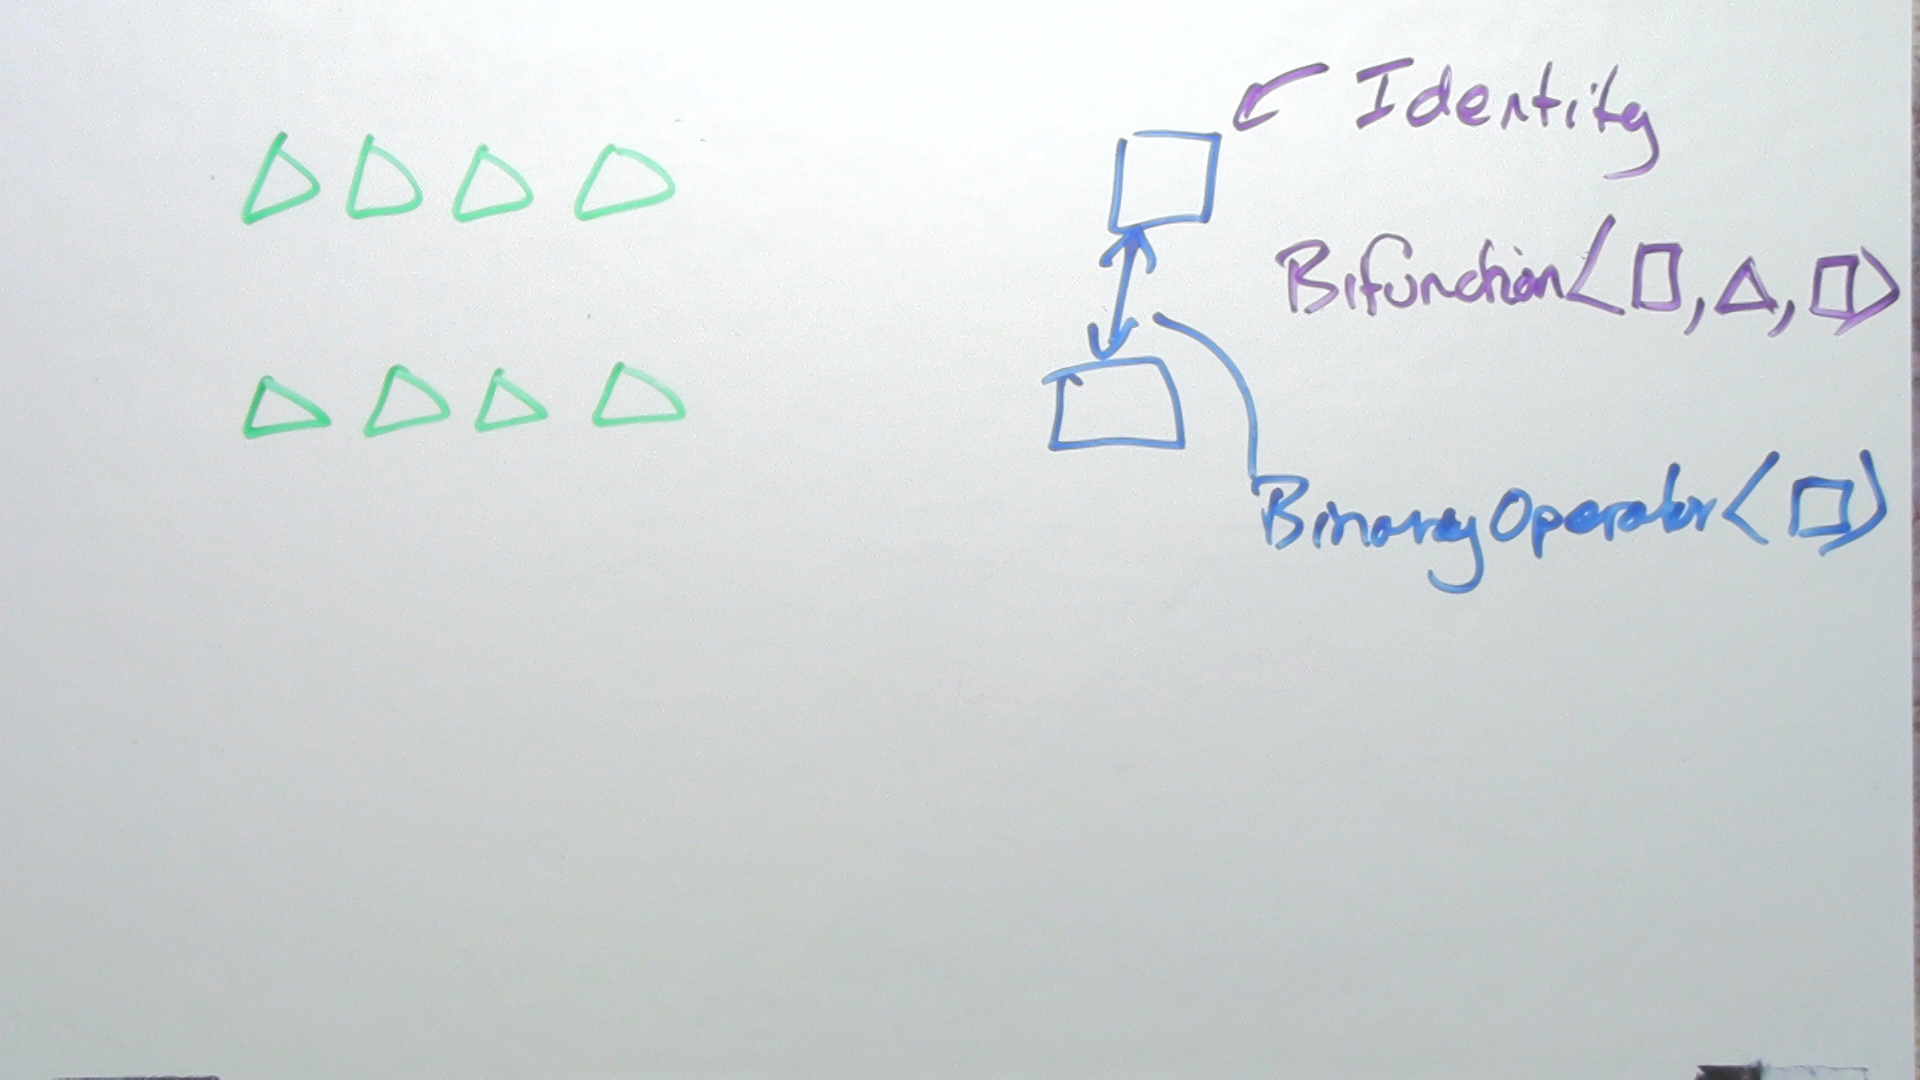 Identity
Bifunction<□, △, □>
BinaryOperator<□>